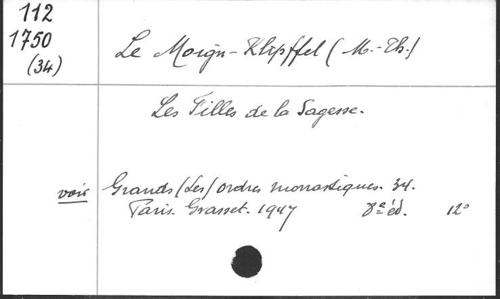 112
1750
(34)
Le Moign-Klipffel (M.-Th.)
Les Filles de la Sagesse.
voir Grands (Les) ordres monastiques. 34.
Paris. Grasset. 1947 8e éd. 12°